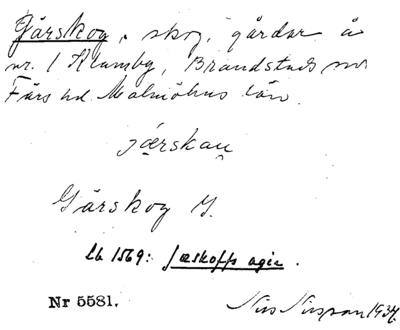 Gårskog, skog, gårdar å
nr. 1 Klamby, Brandstads sn
Färs hd Malmöhus län
jærskau
Gårskog G.
Lb 1569: Jæskoffs agie.
Nr 5581.
Nils Nilsson 1934.